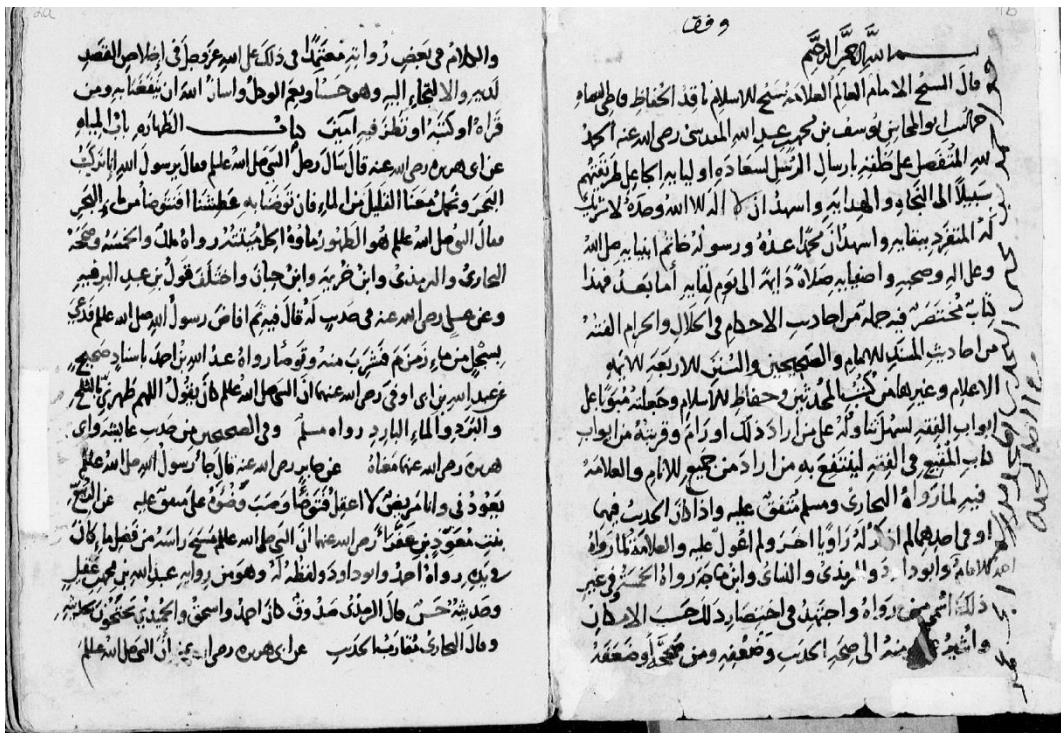 وقف
بسم الله الرحمن الرحيم
قال الشيخ الامام العالم العلامة شيخ الاسلام ناقد الحفاظ
ابو المحاسن يوسف بن محمد بن عبد الله المقدسى رضى الله عنه الحمد
لله المتفضل على خلقه بارسال الرسل لسعادة اوليايه الجاعل
سبيلا الى النجاة والهداية واشهد ان لا اله الا الله وحده لا شريك
له المنفرد ببقايه واشهد ان محمدا عبده ورسوله خاتم انبيايه صلى الله
وعلى اله وصحبه واصفيايه صلاة دايمة الى يوم لقايه أما بعد فهذا
كتاب مختصر فيه جملة من احاديث الاحكام فى الحلال والحرام
من احاديث المسند للامام والصحيحين والسنن الاربعة للايمة
الاعلام وغيرها من كتب المحدثين وحفاظ الاسلام وجعلته مبوبا على
ابواب الفقه ليسهل تناوله على من اراد ذلك او رام وقربته من ابواب
كتاب المقنع فى الفقه لينتفع به من اراد من جميع الانام والعلامة
فيه لما رواه البخارى ومسلم متفق عليه واذا كان الحديث فيهما
او فى احدهما لم اذكر له راويا اخر ولم اقول عليه والعلامة لما رواه
احمد الامام وابو داود والترمذى والنساى وابن ماجة رواه الخمسة وفى غير
ذلك اسمى من رواه واجتهد فى اختصار ذلك حسب الامكان
واشير منه الى صحة الحديث وضعفه ومن صححه أو ضعفه
والكلام فى بعض رواته معتمدا فى ذلك على الله عز وجل فى اخلاص القصد
لديه والالتجاء اليه وهو حسبنا ونعم الوكيل واسأل الله ان ينفعنا به ومن
قراه او كتبه او نظر فيه امين كتاب الطهارة باب المياه
عن ابى هريرة رضى الله عنه قال سأل رجل النبى صلى الله عليه وسلم فقال يرسول الله انا نركب
البحر ونحمل معنا القليل من الماء فان توضأنا به عطشنا افنتوضأ من ماء البحر
فقال النبى صلى الله عليه وسلم هو الطهور ماؤه الحل ميتته رواه ملك والخمسة وصححه
البخارى والترمذى وابن خزيمة وابن حبان واختلف قول بن عبد البر فيه
وعن على رضى الله عنه فى حديث له قال فيه ثم افاض رسول الله صلى الله عليه وسلم فدعى
بسجل من ماء زمزم فشرب منه وتوضأ رواه عبد الله بن احمد باسناد صحيح
عن عبد الله بن ابى اوفى رضى الله عنهما ان النبى صلى الله عليه وسلم كان يقول اللهم طهرنى بالثلج
والبرد والماء البارد رواه مسلم وفى الصحيحين من حديث عايشة وابى
هريرة رضى الله عنهما معناه عن جابر رضى الله عنه قال جا رسول الله صلى الله عليه وسلم
يعودنى وانا مريض لا اعقل فتوضأ وصب وضوءه على متفق عليه عن الربيع
بنت معوذ بن عفراء رضى الله عنهما ان النبى صلى الله عليه وسلم مسح راسه من فضل ماء كان
فى يده رواه احمد وابو داود ولفظه له وهو من رواية عبد الله بن محمد بن عقيل
وحديثه حسن قال الترمذى صدوق كان احمد واسحق والحميدى يحتجون بحديثه
وقال البخارى مقارب الحديث عن ابى هريرة رضى الله عنه أن النبى صلى الله عليه وسلم